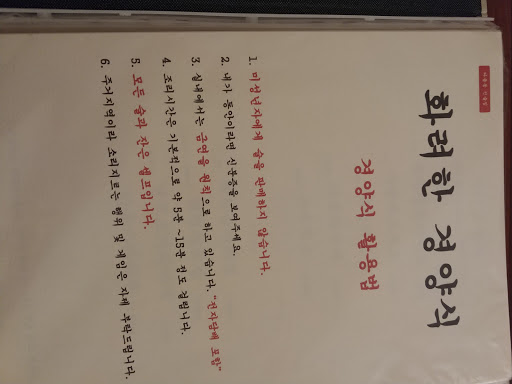 화려한 경양식
경양식 활용법
1. 미성년자에게 술을 판매하지 않습니다.
2. 내가 동안이라면 신분증을 보여주세요.
3. 실내에서는 금연을 원칙으로 하고 있습니다. "전자담배 포함"
4. 조리시간은 기본적으로 약 5분 ~15분 정도 걸립니다.
5. 모든 술과 잔은 셀프입니다.
6. 주거지역이라 소리지르는 행위 및 게임은 자제 부탁드립니다.